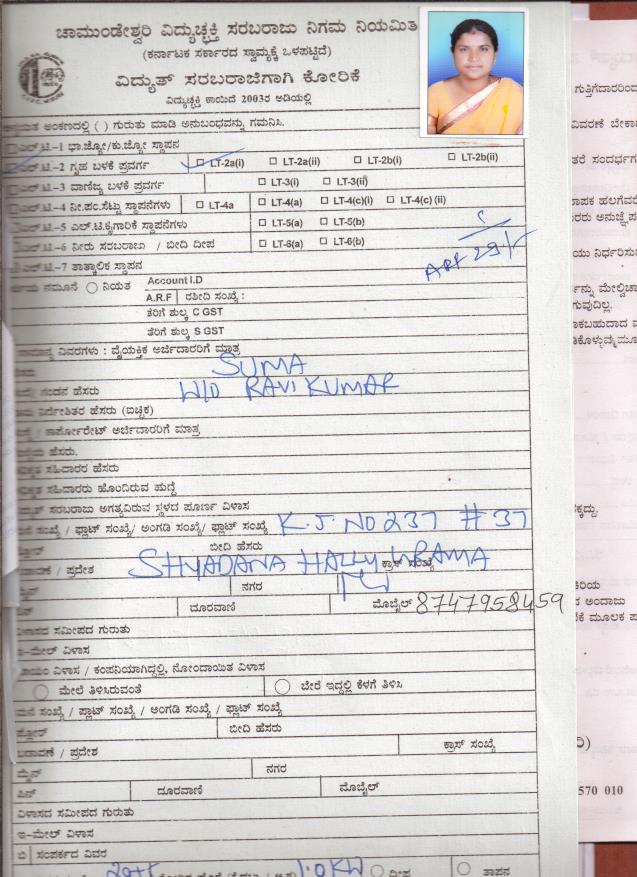 ಚಾಮುಂಡೇಶ್ವರಿ ವಿದ್ಯುಚ್ಛಕ್ತಿ ಸರಬರಾಜು ನಿಗಮ ನಿಯಮಿತ
(ಕರ್ನಾಟಕ ಸರ್ಕಾರದ ಸ್ವಾಮ್ಯಕ್ಕೆ ಒಳಪಟ್ಟಿದೆ)
ವಿದ್ಯುತ್ ಸರಬರಾಜಿಗಾಗಿ ಕೋರಿಕೆ
ವಿದ್ಯುಚ್ಛಕ್ತಿ ಕಾಯಿದೆ 2003ರ ಅಡಿಯಲ್ಲಿ
ಅಂಕಣದಲ್ಲಿ ( ) ಗುರುತು ಮಾಡಿ ಅನುಬಂಧವನ್ನು ಗಮನಿಸಿ.
ಎಲ್.ಟಿ.-1 ಭಾ.ಜ್ಯೋ/ಕು.ಜ್ಯೋ ಸ್ಥಾಪನ
ಎಲ್.ಟಿ.-2 ಗೃಹ ಬಳಕೆ ಪ್ರವರ್ಗ LT-2a(i) LT-2a(ii) LT-2b(i) LT-2b(ii)
ಎಲ್.ಟಿ.-3 ವಾಣಿಜ್ಯ ಬಳಕೆ ಪ್ರವರ್ಗ LT-3(i) LT-3(ii)
ಎಲ್.ಟಿ.-4 ನೀ.ಪಂ.ಸೆಟ್ಟು ಸ್ಥಾಪನೆಗಳು LT-4a LT-4(a) LT-4(c)(i) LT-4(c) (ii)
ಎಲ್.ಟಿ.-5 ಎಲ್.ಟಿ.ಕೈಗಾರಿಕೆ ಸ್ಥಾಪನೆಗಳು LT-5(a) LT-5(b)
ಎಲ್.ಟಿ.-6 ನೀರು ಸರಬರಾಜು / ಬೀದಿ ದೀಪ LT-6(a) LT-6(b)
ಎಲ್.ಟಿ.-7 ತಾತ್ಕಾಲಿಕ ಸ್ಥಾಪನ
ARF 29/-
ನಮೂನೆ ನಿಯತ Account I.D
A.R.F ರಶೀದಿ ಸಂಖ್ಯೆ :
ತೆರಿಗೆ ಶುಲ್ಕ C GST
ತೆರಿಗೆ ಶುಲ್ಕ S GST
ವಿವರಗಳು : ವೈಯಕ್ತಿಕ ಅರ್ಜಿದಾರರಿಗೆ ಮಾತ್ರ
SUMA
ಗಂಡನ ಹೆಸರು W/O RAVI KUMAR
ನಿರ್ದೇಶಿತರ ಹೆಸರು (ಐಚ್ಛಿಕ)
/ ಕಾರ್ಪೋರೇಟ್ ಅರ್ಜಿದಾರರಿಗೆ ಮಾತ್ರ
ಹೆಸರು.
ಸಹಿದಾರರ ಹೆಸರು
ಸಹಿದಾರರು ಹೊಂದಿರುವ ಹುದ್ದೆ
ಸರಬರಾಜು ಅಗತ್ಯವಿರುವ ಸ್ಥಳದ ಪೂರ್ಣ ವಿಳಾಸ
ಸಂಖ್ಯೆ / ಫ್ಲಾಟ್ ಸಂಖ್ಯೆ/ ಅಂಗಡಿ ಸಂಖ್ಯೆ/ ಫ್ಲಾಟ್ ಸಂಖ್ಯೆ K.J. NO 237 # 37
ಬೀದಿ ಹೆಸರು
/ ಪ್ರದೇಶ SHYADANA HALLY GRAMA ಕ್ರಾಸ್ ಸಂಖ್ಯೆ
ನಗರ
ದೂರವಾಣಿ ಮೊಬೈಲ್ 8747958459
ವಿಳಾಸದ ಸಮೀಪದ ಗುರುತು
ಇ-ಮೇಲ್ ವಿಳಾಸ
ವಿಳಾಸ / ಕಂಪನಿಯಾಗಿದ್ದಲ್ಲಿ, ನೋಂದಾಯಿತ ವಿಳಾಸ
ಮೇಲೆ ತಿಳಿಸಿರುವಂತೆ ಬೇರೆ ಇದ್ದಲ್ಲಿ ಕೆಳಗೆ ತಿಳಿಸಿ
ಮನೆ ಸಂಖ್ಯೆ / ಪ್ಲಾಟ್ ಸಂಖ್ಯೆ / ಅಂಗಡಿ ಸಂಖ್ಯೆ / ಫ್ಲಾಟ್ ಸಂಖ್ಯೆ
ಫ್ಲೋರ್ ಬೀದಿ ಹೆಸರು
ಬಡಾವಣೆ / ಪ್ರದೇಶ ಕ್ರಾಸ್ ಸಂಖ್ಯೆ
ಮೈನ್ ನಗರ
ಪಿನ್ ದೂರವಾಣಿ ಮೊಬೈಲ್
ವಿಳಾಸದ ಸಮೀಪದ ಗುರುತು
ಇ-ಮೇಲ್ ವಿಳಾಸ
ಬಿ ಸಂಪರ್ಕದ ವಿವರ
1.0 KW ದೀಪ ತಾಪನ
570 010